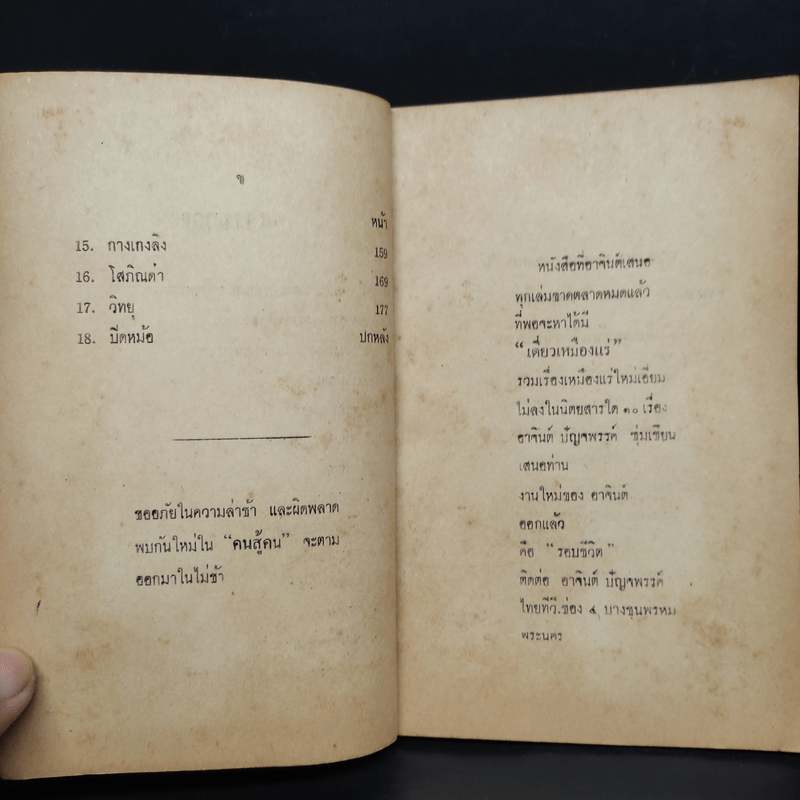 ข
หน้า
15. กางเกงลิง 159
16. โสภิณดำ 169
17. วิทยุ 177
18. บีดหม้อ ปกหลัง
ขออภัยในความล่าช้า และผิดพลาด
พบกันใหม่ใน “คนสู้คน” จะตาม
ออกมาในไม่ช้า
หนังสือที่อาจินต์เสนอ
ทุกเล่มขาดตลาดหมดแล้ว
ที่พอจะหาได้มี
“เดี่ยวเหมืองแร่”
รวมเรื่องเหมืองแร่ใหม่เอี่ยม
ไม่ลงในนิตยสารใด ๑๐ เรื่อง
อาจินต์ ปัญจพรรค์ ซุ่มเขียน
เสนอท่าน
งานใหม่ของ อาจินต์
ออกแล้ว
คือ “รอบชีวิต”
ติดต่อ อาจินต์ ปัญจพรรค์
ไทยทีวี.ช่อง ๔ บางขุนพรหม
พระนคร